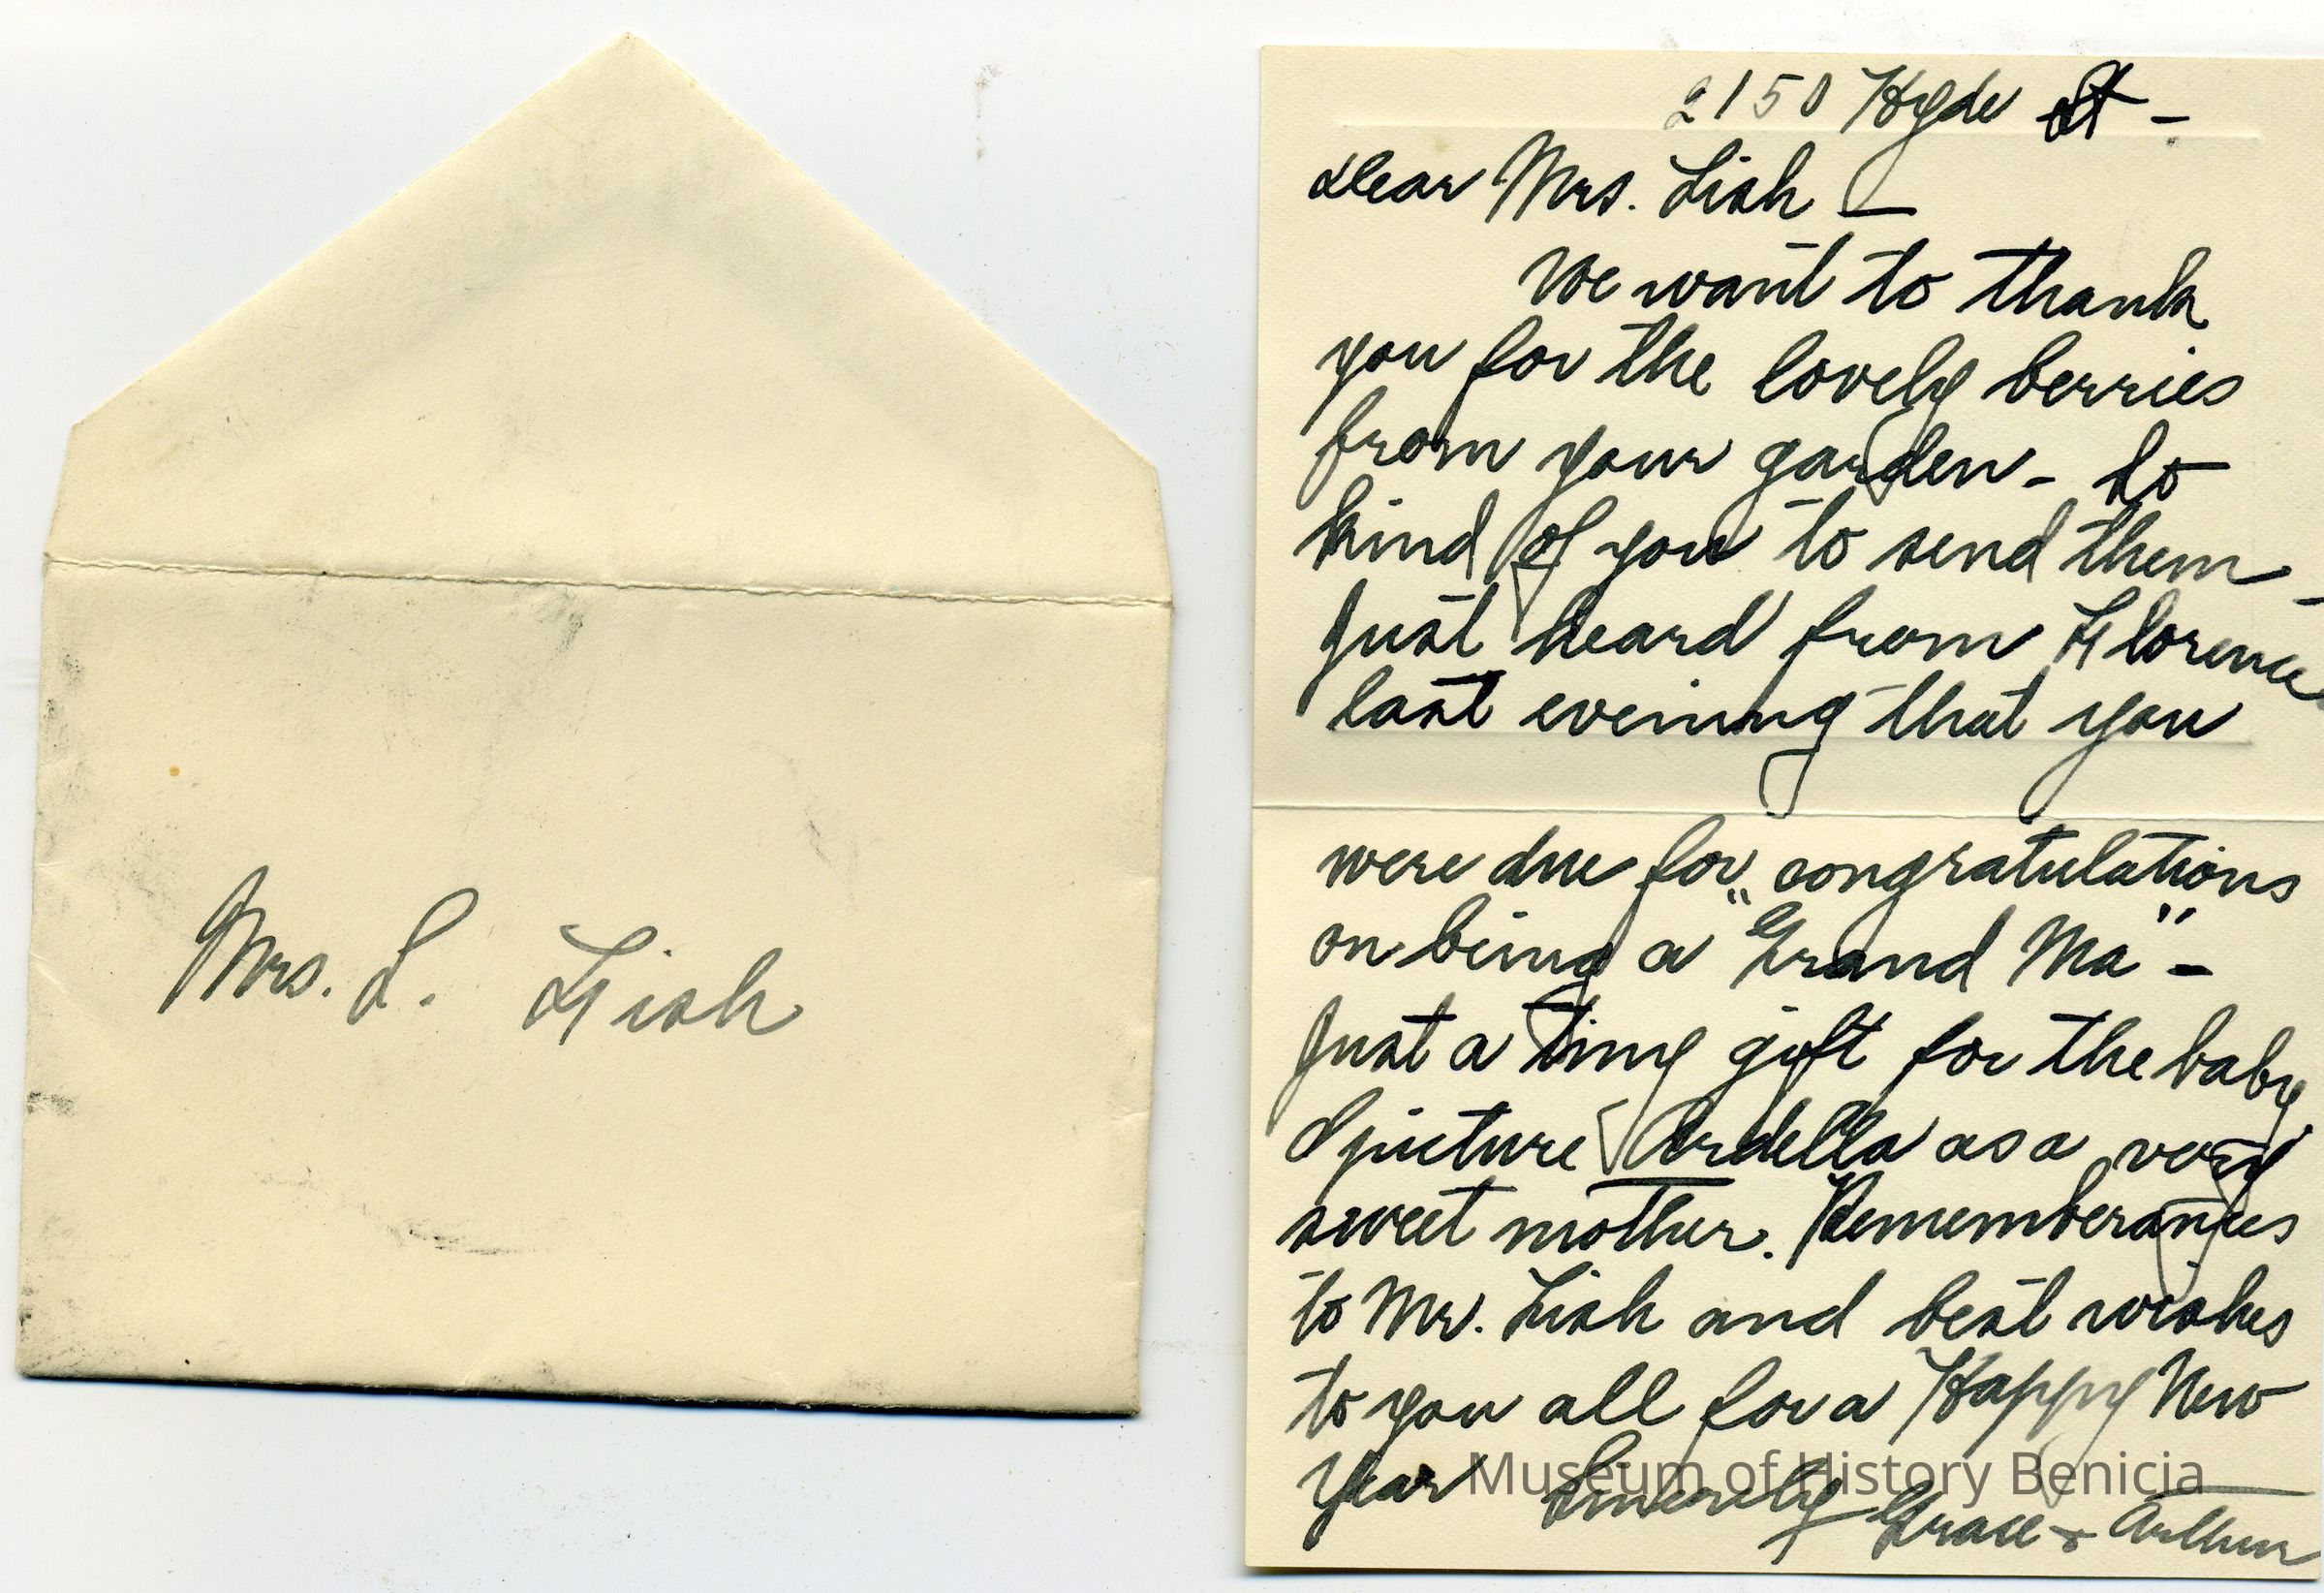 Mrs. L. Fish
2150 Hyde St -
Dear Mrs. Fish -
We want to thank
you for the lovely berries
from your garden - So
kind of you to send them -
Just heard from Florence
last evening that you
were due for congratulations
on being a "Grand Ma" -
Just a tiny gift for the baby
I picture Ardella as a very
sweet mother. Rememberances
to Mr. Fish and best wishes
to you all for a Happy New
Year Sincerely Grace + Arthur
Museum of History Benicia